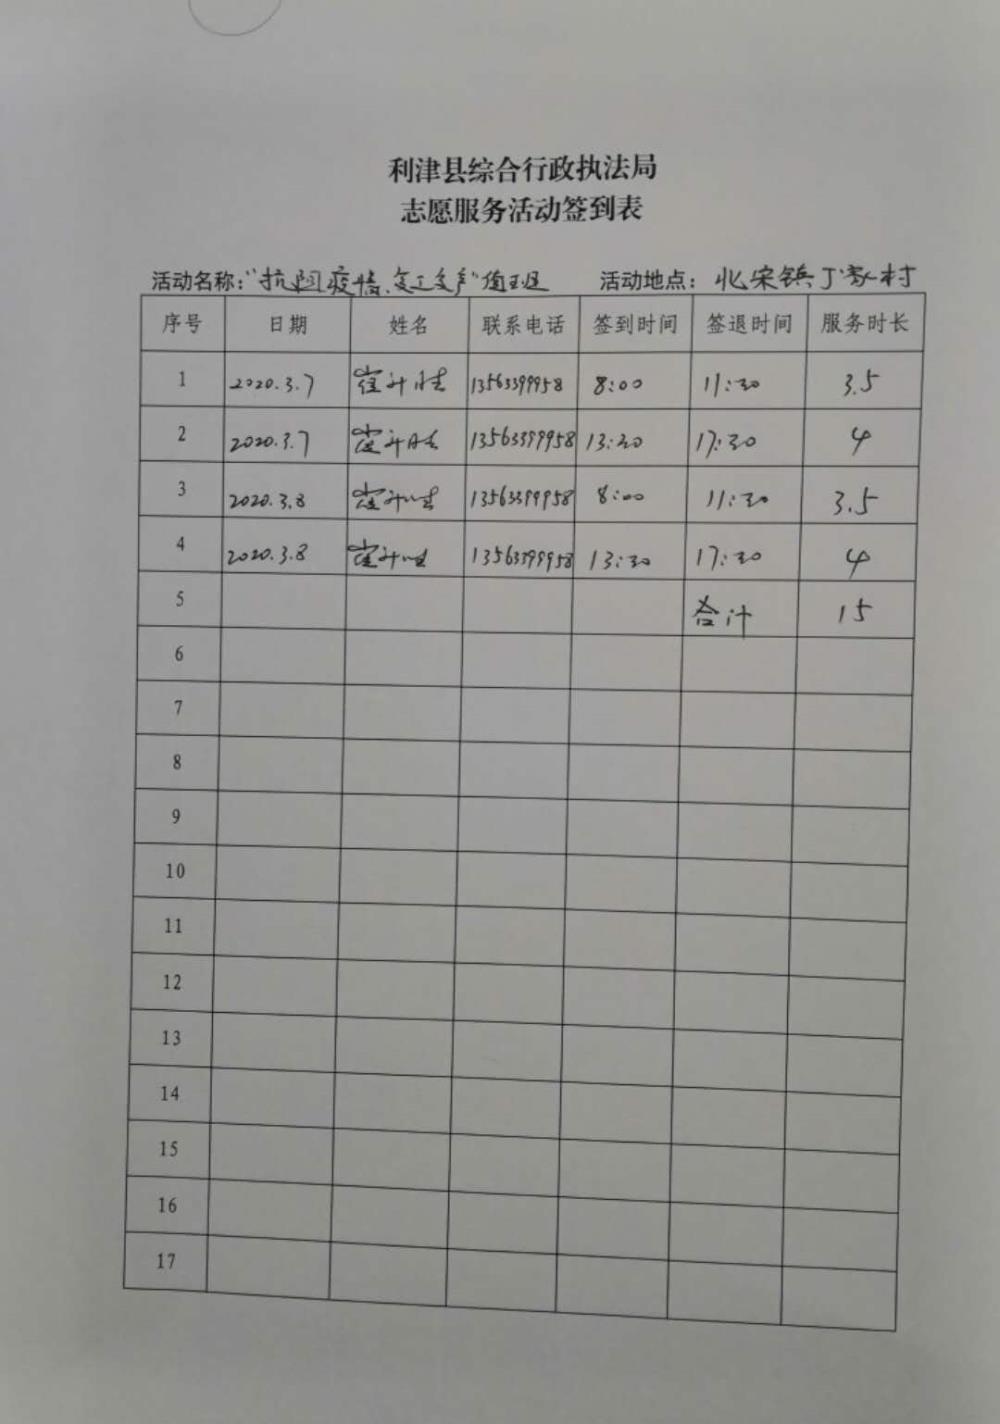 利津县综合行政执法局
志愿服务活动签到表
活动名称："抗阻疫情、复工复产"值班 活动地点：北宋镇丁家村
序号 日期 姓名 联系电话 签到时间 签退时间 服务时长
1 2020.3.7 崔升 13563399958 8:00 11:30 3.5
2 2020.3.7 崔升 13563399958 13:30 17:30 4
3 2020.3.8 崔升 13563399958 8:00 11:30 3.5
4 2020.3.8 崔升 13563399958 13:30 17:30 4
5 合计 15
6
7
8
9
10
11
12
13
14
15
16
17